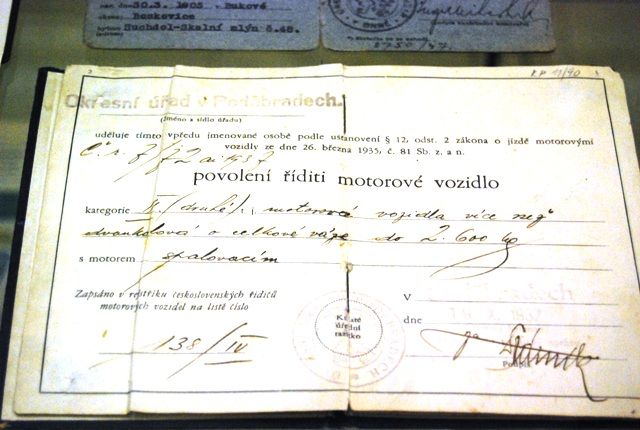 nar. dne 30.3. 1905 v Bukové
okres: Boskovice
bytem Suchdol-Skalní mlýn č.48.
2750/47.
R.P. 11/90
Okresní úřad v Poděbradech.
(Jméno a sídlo úřadu)
uděluje tímto vpředu jmenované osobě podle ustanovení § 12, odst. 2 zákona o jízdě motorovými
vozidly ze dne 26. března 1935, č. 81 Sb. z. a n.
povolení říditi motorové vozidlo
kategorie II. (druhé): motorová vozidla více než
dvoukolová o celkové váze do 2.600 kg
s motorem spalovacím
Zapsáno v rejstříku československých řidičů
motorových vozidel na listě číslo
138/IV
Kulaté
úřední
razítko
V
dne
Podpis